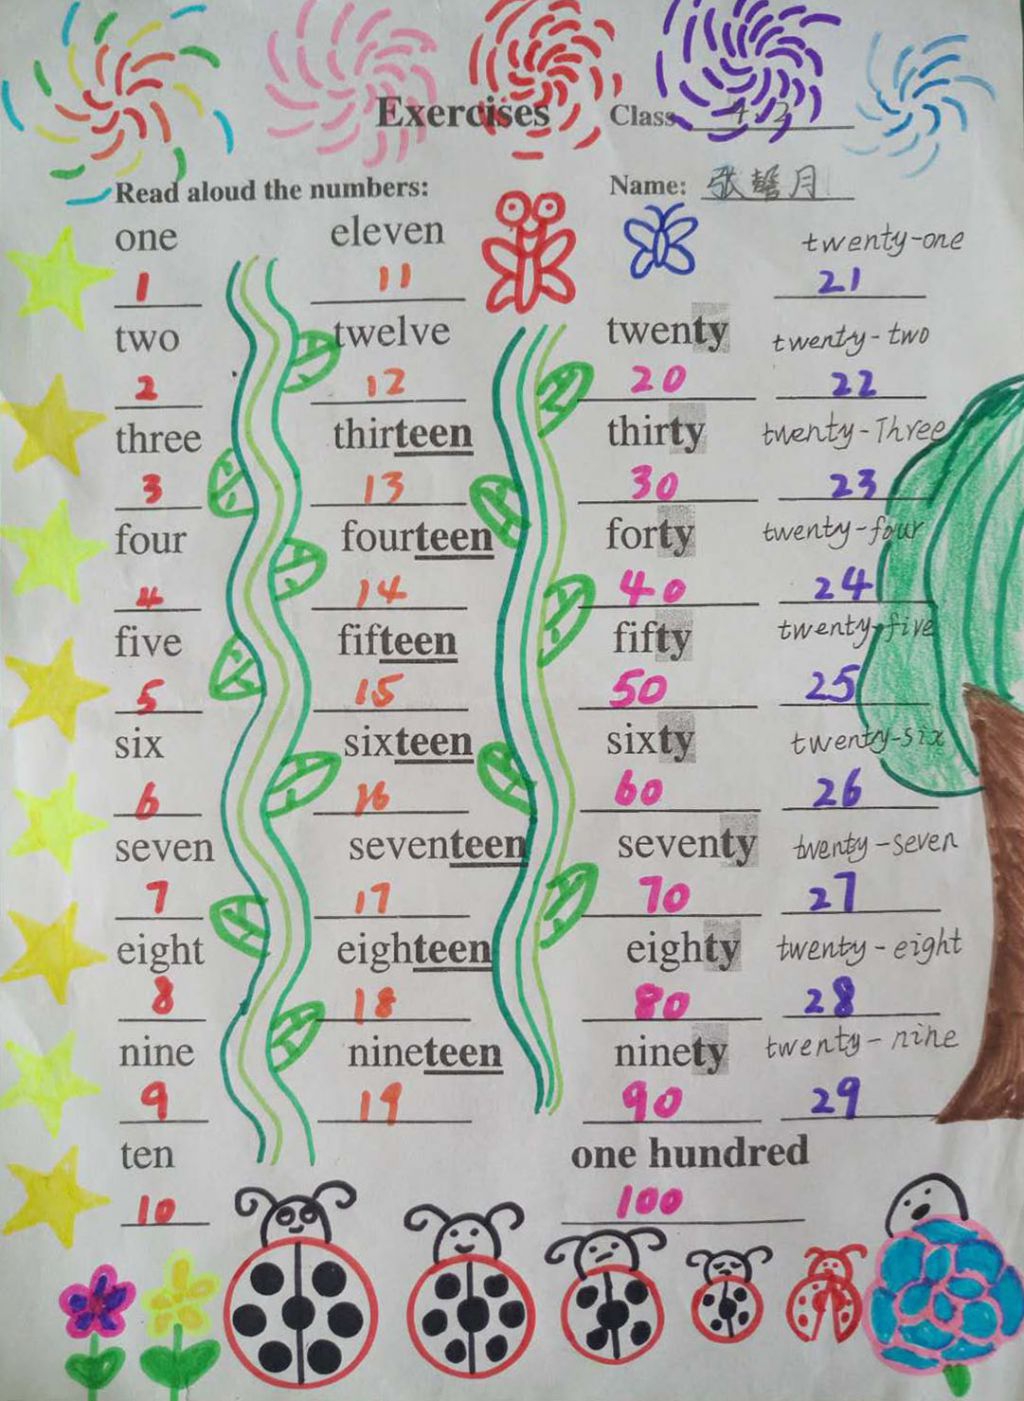 Exercises Class 4.2
Read aloud the numbers: Name: 张誉月
one eleven twenty-one
1 11 21
two twelve twenty twenty-two
2 12 20 22
three thirteen thirty twenty-Three
3 13 30 23
four fourteen forty twenty-four
4 14 40 24
five fifteen fifty twenty-five
5 15 50 25
six sixteen sixty twenty-six
6 16 60 26
seven seventeen seventy twenty-seven
7 17 70 27
eight eighteen eighty twenty-eight
8 18 80 28
nine nineteen ninety twenty-nine
9 19 90 29
ten one hundred
10 100